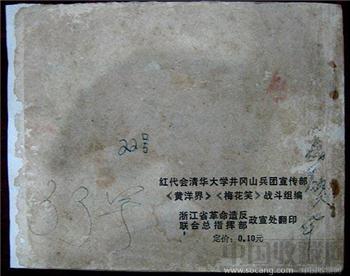 22号
红代会清华大学井冈山兵团宣传部
《黄洋界》《梅花笑》战斗组编
浙江省革命造反
联合总指挥部
政宣处翻印
定价：0.10元
中国收藏网
www.socang.com